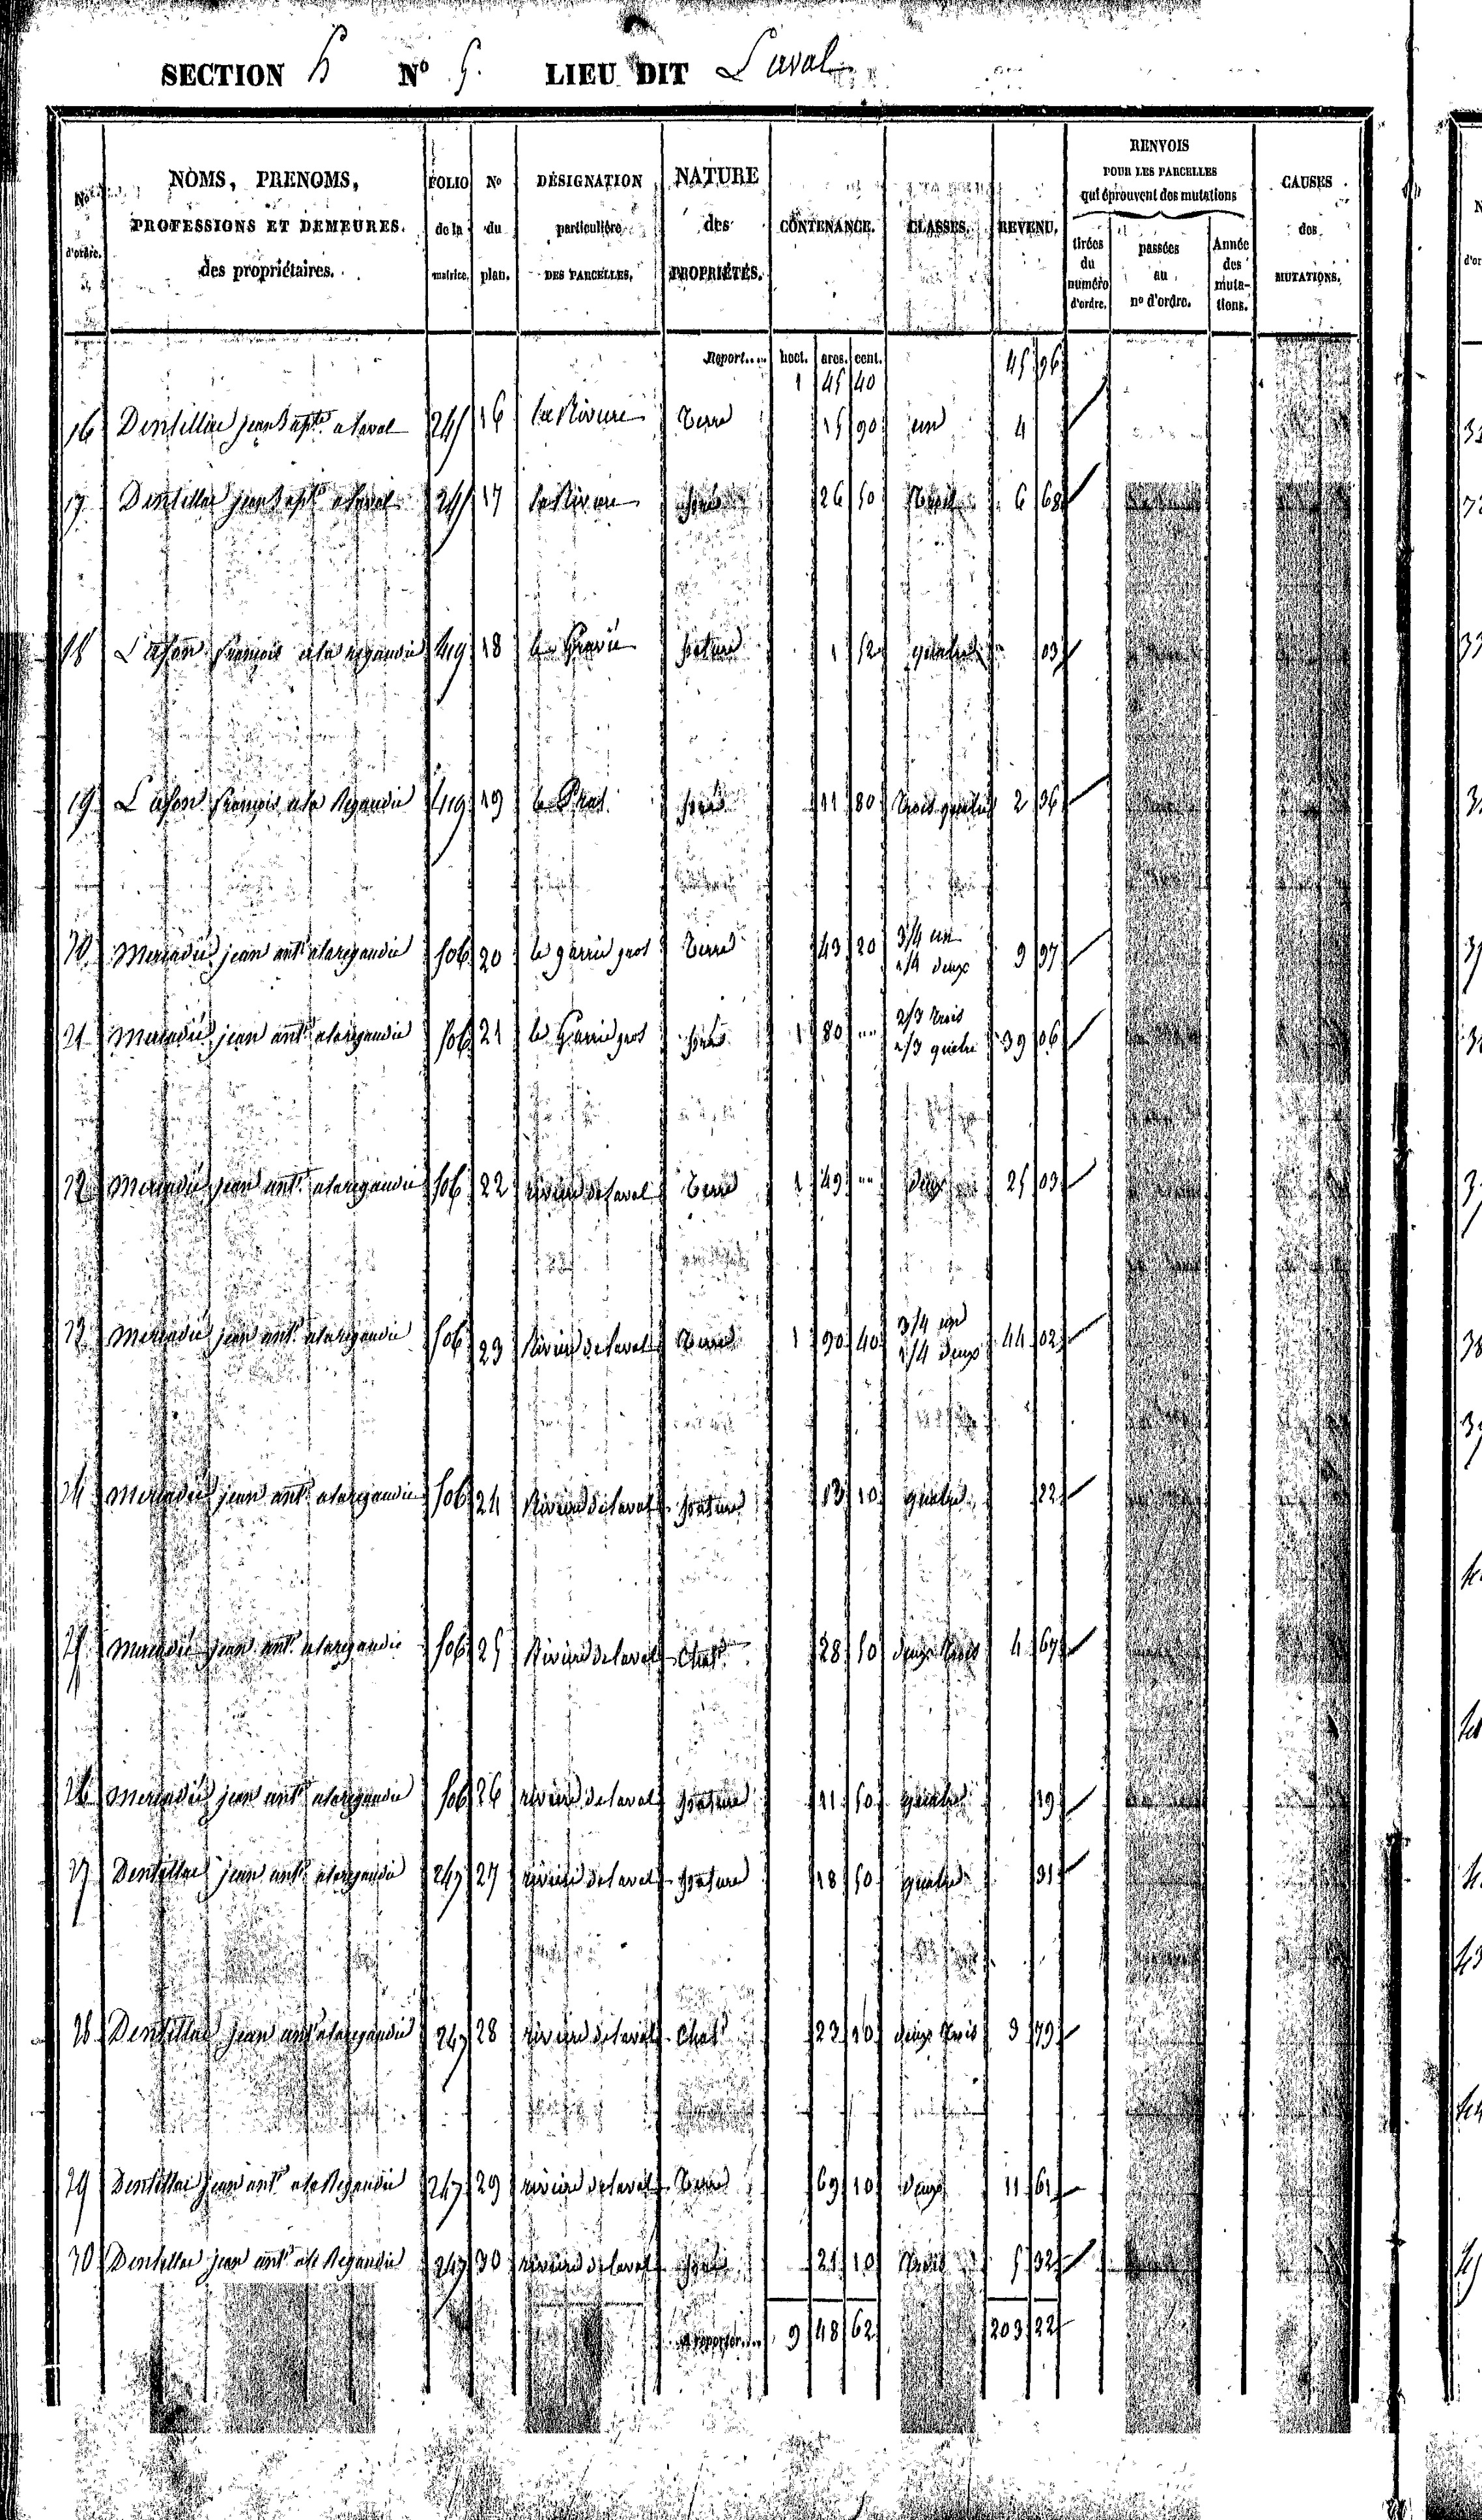 SECTION h N° 5. LIEU DIT Laval
NOMS, PRENOMS, PROFESSIONS ET DEMEURES. des propriétaires.
N° d'ordre.
FOLIO de la matrice.
N° du plan.
DÉSIGNATION particulière DES PARCELLES.
NATURE des PROPRIÉTÉS.
CONTENANCE.
CLASSES.
REVENU.
RENVOIS POUR LES PARCELLES qui éprouvent des mutations
tirées du numéro d'ordre.
passées au n° d'ordre.
Année des mutations.
CAUSES des MUTATIONS.
Report.... hect. ares. cent.
1 45 40 45 96
16 Dentillac jean Bapte a laval 245 16 la Riviere Terre 15 90 un 4
17 Dentillac jean Bapte a laval 245 17 la Riviere pré 26 50 trois 6 68
18 Lafon françois a la regaudie 419 18 pature 1 52 quatre 03
19 Lafon françois a la Regaudie 419 19 le Prat pré 11 80 trois quatre 2 36
20 jean ant. a la regaudie 506 20 le garrie gros Terre 43 20 3/4 un 1/4 deux 9 97
21 jean ant. a la regaudie 506 21 le garrie gros pré 1 80 " 2/3 trois 1/3 quatre 39 06
22 jean ant. a la regaudie 506 22 riviere de laval Terre 1 49 " deux 25 03
23 jean ant. a la regaudie 506 23 Riviere de laval Terre 1 90 40 3/4 un 1/4 deux 44 02
24 jean ant. a la regaudie 506 24 Riviere de laval pature 13 10 quatre 22
25 jean ant. a la regaudie 506 25 Riviere de laval Chat. 28 50 deux trois 4 67
26 jean ant. a la regaudie 506 26 riviere de laval pature 11 50 quatre 19
27 Dentillac jean ant. a la regaudie 247 27 riviere de laval pature 18 50 quatre 31
28 Dentillac jean ant. a la regaudie 247 28 riviere de laval Chat. 23 16 deux trois 3 79
29 Dentillac jean ant. a la Regaudie 247 29 riviere de laval Terre 69 10 deux 11 61
30 Dentillac jean ant. a la Regaudie 247 30 riviere de laval pré 21 10 trois 5 32
A reporter.... 9 48 62 203 22